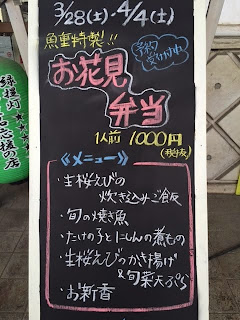 3/28(土)・4/4(土)
魚里特製!!
予約
受付中
お花見
弁当
1人前 1000円
(税抜)
《メニュー》
・生桜えびの
炊き込みご飯
・旬の焼き魚
・たけの子とにしんの煮もの
・生桜えびのかき揚げ
&旬菜天ぷら
・お新香
緑提灯